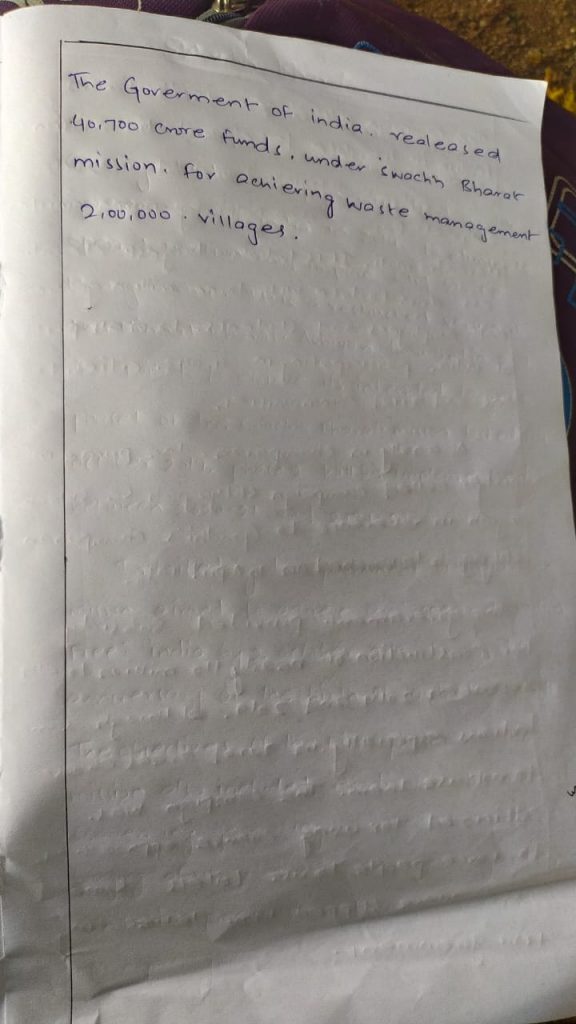 The Goverment of india. realeased
40,700 crore funds, under swachh Bharat
mission. for achieving waste management
2,00,000. villages.